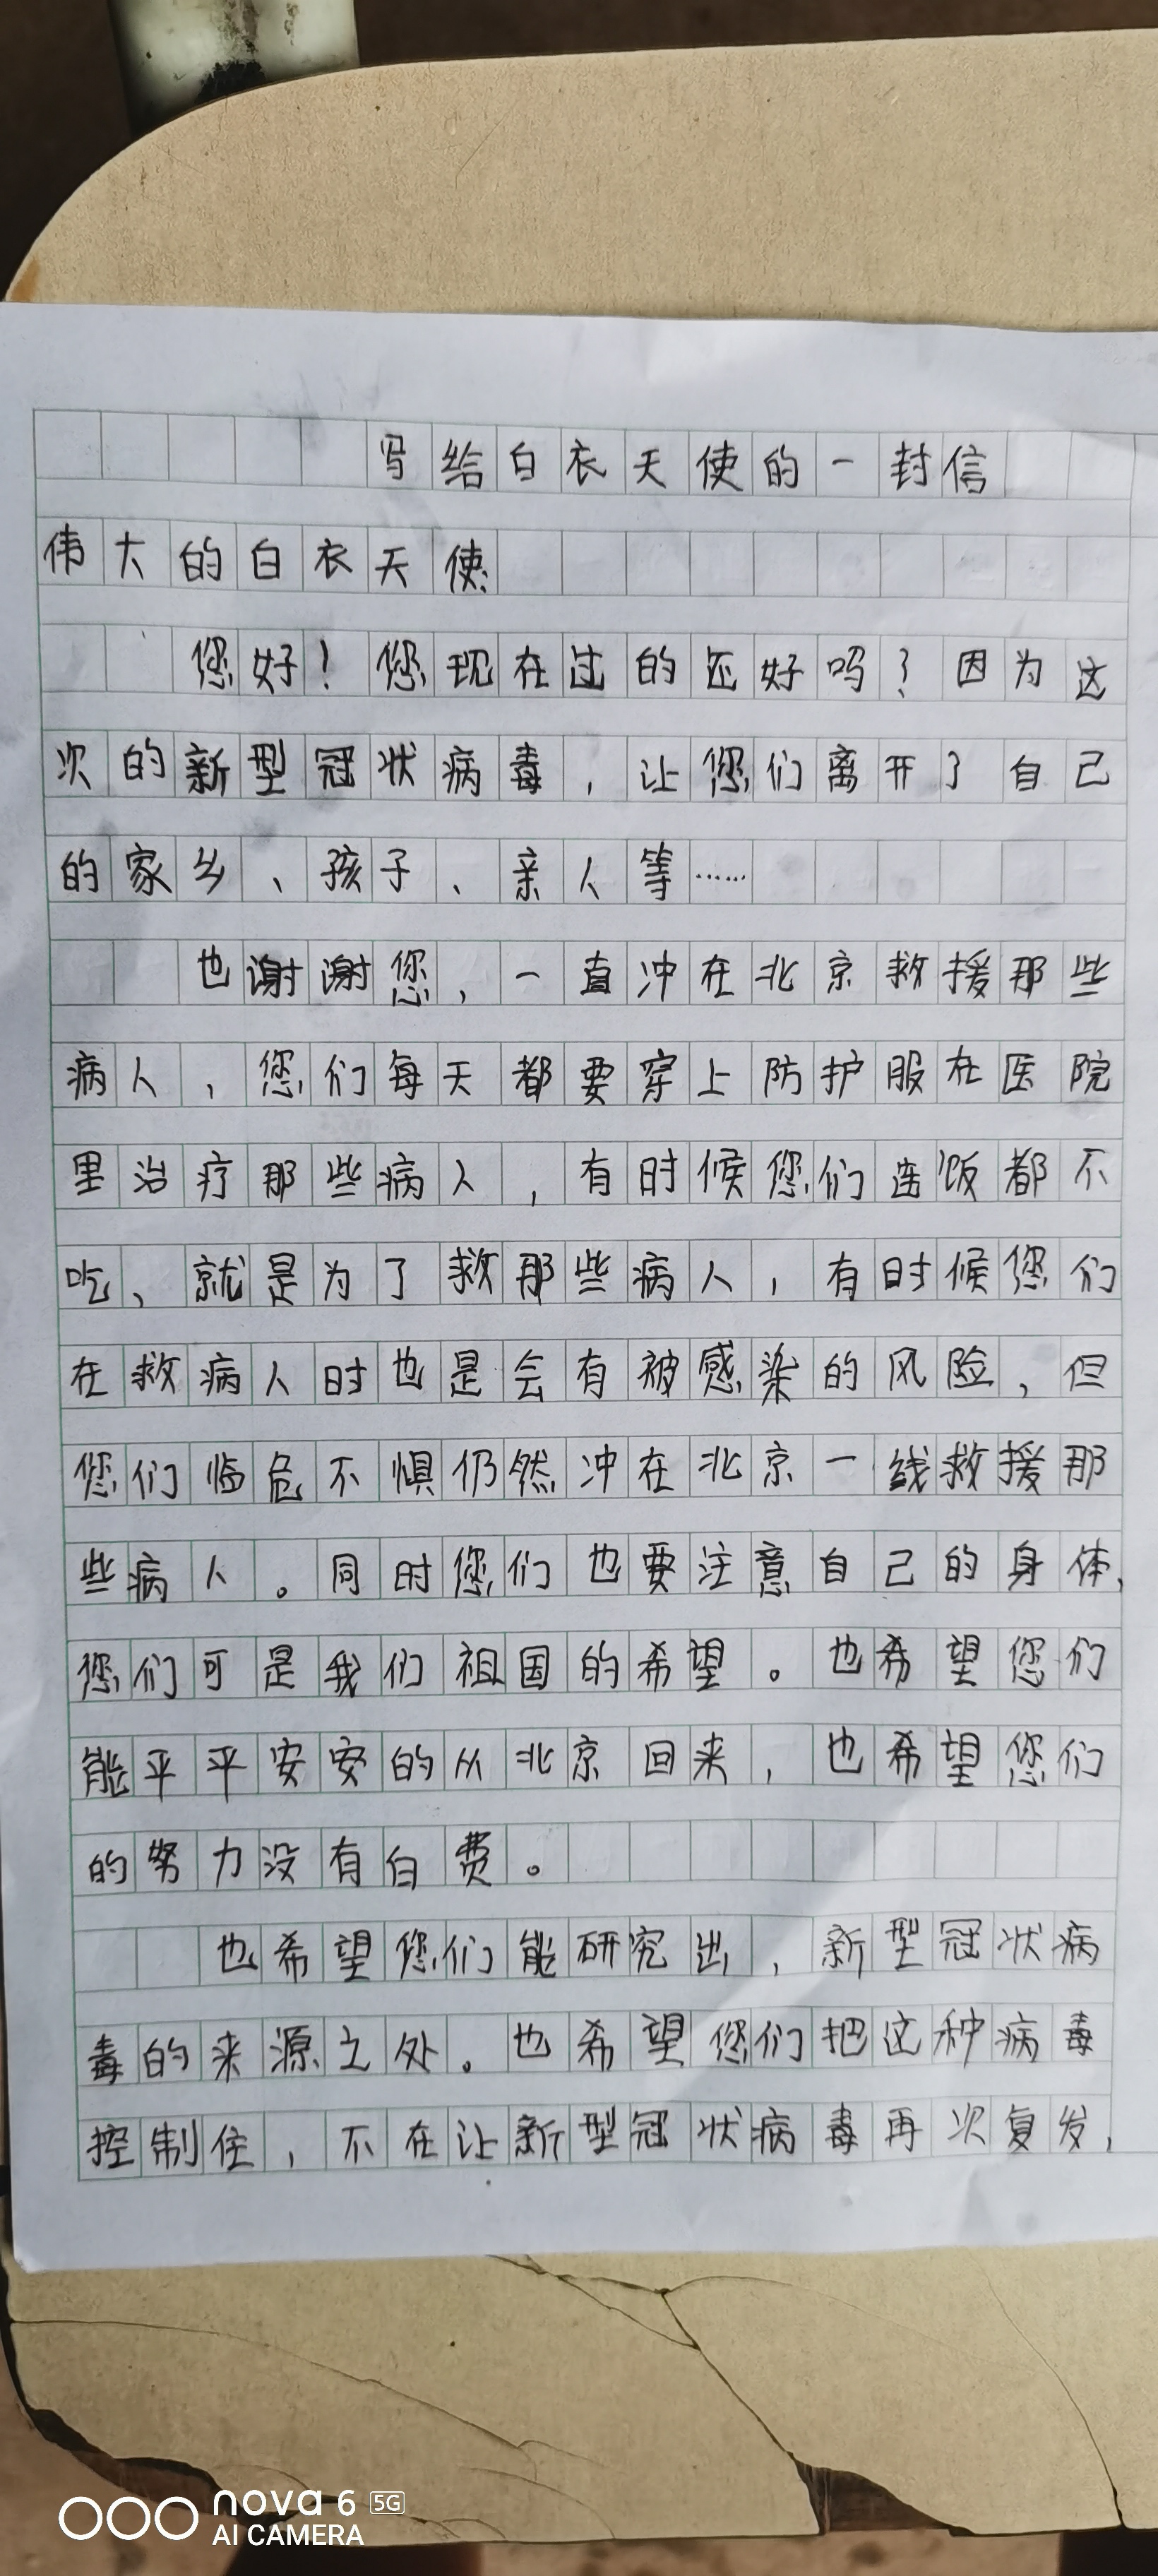 写给白衣天使的一封信
伟大的白衣天使:
您好！您现在过的还好吗？因为这
次的新型冠状病毒，让您们离开了自己
的家乡、孩子、亲人等……
也谢谢您，一直冲在北京救援那些
病人，您们每天都要穿上防护服在医院
里治疗那些病人，有时候您们连饭都不
吃、就是为了救那些病人，有时候您们
在救病人时也是会有被感染的风险，但
您们临危不惧仍然冲在北京一线救援那
些病人。同时您们也要注意自己的身体，
您们可是我们祖国的希望。也希望您们
能平平安安的从北京回来，也希望您们
的努力没有白费。
也希望您们能研究出，新型冠状病
毒的来源之处。也希望您们把这种病毒
控制住，不在让新型冠状病毒再次复发，
nova 6 5G
AI CAMERA